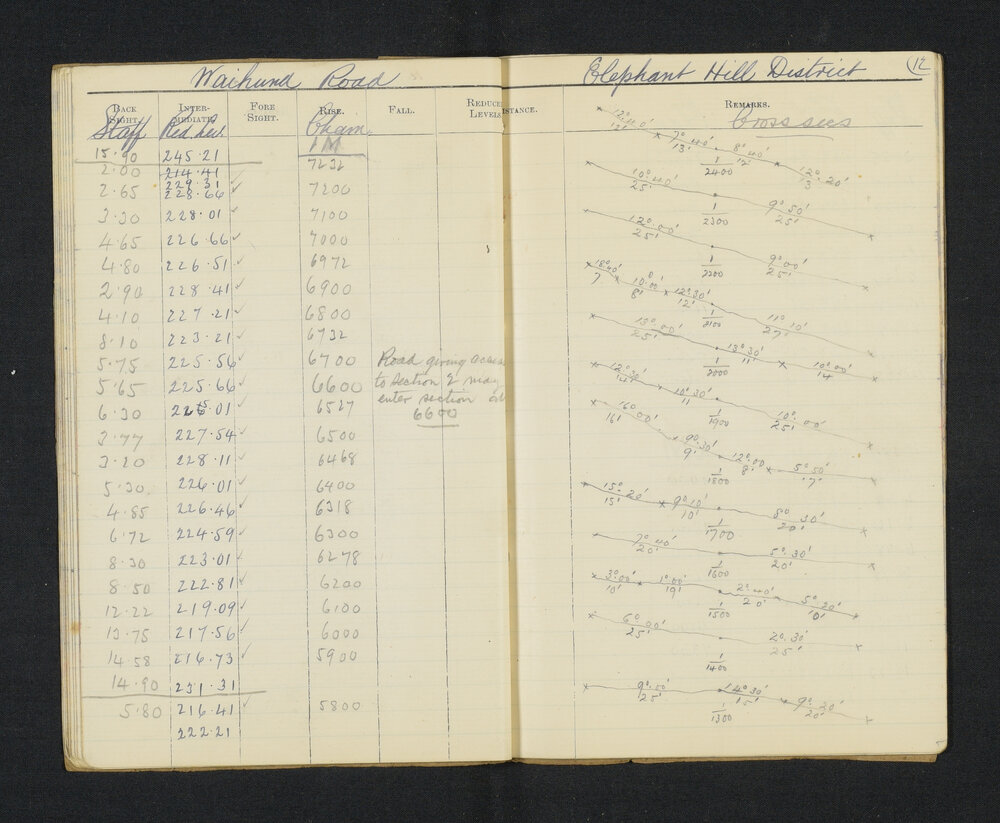 Waihuna Road
Elephant Hill District 12
BACK SIGHT. INTER-MEDIATE. FORE SIGHT. RISE. FALL. REDUCED LEVELS DISTANCE. REMARKS.
Staff Red. Lev. Chain Cross secs
1M
15.90 245.21
2.00 214.41 7232
229.31
2.65 228.66 7200
3.30 228.01 7100
4.65 226.66 7000
4.80 226.51 6972
2.90 228.41 6900
4.10 227.21 6800
8.10 223.21 6732
5.75 225.56 6700 Road giving access
5.65 225.66 6600 to section 2 may
6.30 225.01 6527 enter section at
6600
3.77 227.54 6500
3.20 228.11 6468
5.30 226.01 6400
4.85 226.46 6318
6.72 224.59 6300
8.30 223.01 6278
8.50 222.81 6200
12.22 219.09 6100
13.75 217.56 6000
14.58 216.73 5900
14.90 231.31
5.80 216.41 5800
222.21
12°.40' 12' 7°.40' 13' 8°.40' 12' 12°.20' 13
1/2400
10°.40' 25' 9°.50' 25'
1/2300
12°.00' 25' 9°.00' 25'
1/2200
18°.40' 7 10°.00 8' 12°.30' 12' 11°.10' 27'
1/2100
13°.00' 25' 13°.30' 11' 10°.00' 14
1/2000
12°.30' 14' 10°.30' 11 10°.00' 25'
1/1900
16°.00' 16' 9°.30' 9' 12°.00 8' 5°.50' 17'
1/1800
15°.20' 15' 9°.10' 10' 8°.30' 20'
1/1700
7°.40' 20' 5°.30' 20'
1/1600
3°.00' 10' 1°.00' 19' 2°.40' 20' 5°.20' 10'
1/1500
6°.00' 25' 2°.30' 25'
1/1400
9°.50' 25' 14°.30' 15' 9°.20' 20'
1/1300